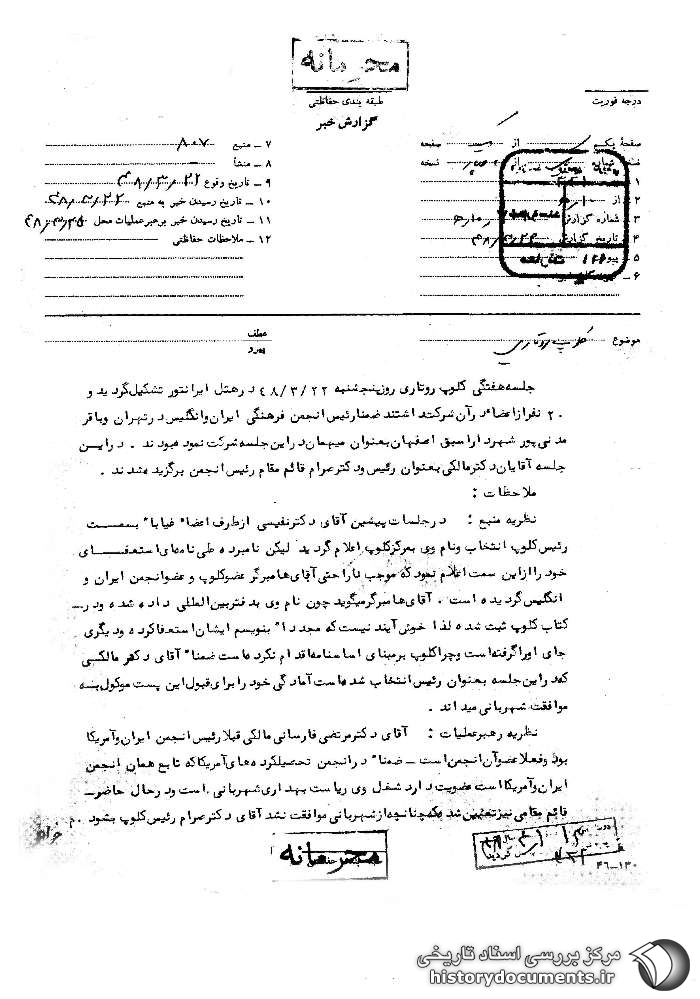 محرمانه
طبقه بندی حفاظتی
گزارش خبر
درجه فوریت
صفحه یک از یک صفحه
نسخه از نسخه
۱ ـ
۲ ـ از
۳ ـ شماره گزارش
۴ ـ تاریخ گزارش
۵ ـ پیوست
۶ ـ
۷ ـ منبع ۸۰۷
۸ ـ منشأ
۹ ـ تاریخ وقوع ۴۸،۳،۲۲
۱۰ ـ تاریخ رسیدن خبر به منبع
۱۱ ـ تاریخ رسیدن خبر برهبر عملیات محل
۱۲ ـ ملاحظات حفاظتی
موضوع کلوپ روتاری
عطف
جلسه هفتگی کلوپ روتاری روز پنجشنبه ۴۸/۳/۲۲ در هتل ایرانتور تشکیل گردید و
۲۰ نفر از اعضاء در آن شرکت داشتند ضمنا رئیس انجمن فرهنگی ایران و انگلیس در تهران و باقر
مدنی پور شهردار اسبق اصفهان بعنوان میهمان در این جلسه شرکت نموده بودند . در ایـن
جلسه آقایان دکتر مالکی بعنوان رئیس و دکتر صرام قائم مقام رئیس انجمن برگزیده شدند .
ملاحظات :
نظریه منبع : در جلسات پیشین آقای دکتر نفیسی از طرف اعضاء غیابا" بسمـــت
رئیس کلوپ انتخاب و نام وی بمرکز کلوپ اعلام گردید لیکن نامبرده طی نامه‌ای استعفـــای
خود را از این سمت اعلام نمود که موجب ناراحتی آقای هامبرگر عضو کلوپ و عضو انجمن ایران و
انگلیس گردیده است . آقای هامبرگر میگوید چون نام وی به دفتر بین المللی داده شده و در
کتاب کلوپ ثبت شده لذا خوش آیند نیست که مجددا" بنویسیم ایشان استعفا کرده و دیگری
جای او را گرفته است و چرا کلوپ بر مبنای اساسنامه اقدام نکرده است ضمنا" آقای دکتر مالکـی
که در این جلسه بعنوان رئیس انتخاب شده است آمادگی خود را برای قبول این پست موکول بـه
موافقت شهربانی میداند .
نظریه رهبر عملیات : آقای دکتر مرتضی فارسانی مالکی قبلا رئیس انجمن ایران و آمریکا
بود و فعلا عضو آن انجمن است ـ ضمنا" در انجمن تحصیلکرده های آمریکا که تابع همان انجمن
ایران و آمریکا است عضویت دارد شغل وی ریاست بهداری شهربانی است و در حال حاضر ـ
قائم مقامی نیز تعیین شد که چنانچه از شهربانی موافقت نشد آقای دکتر صرام رئیس کلوپ بشود . م
محرمانه
۴۶-۱۳۰
مرکز بررسی اسناد تاریخی
historydocuments.ir